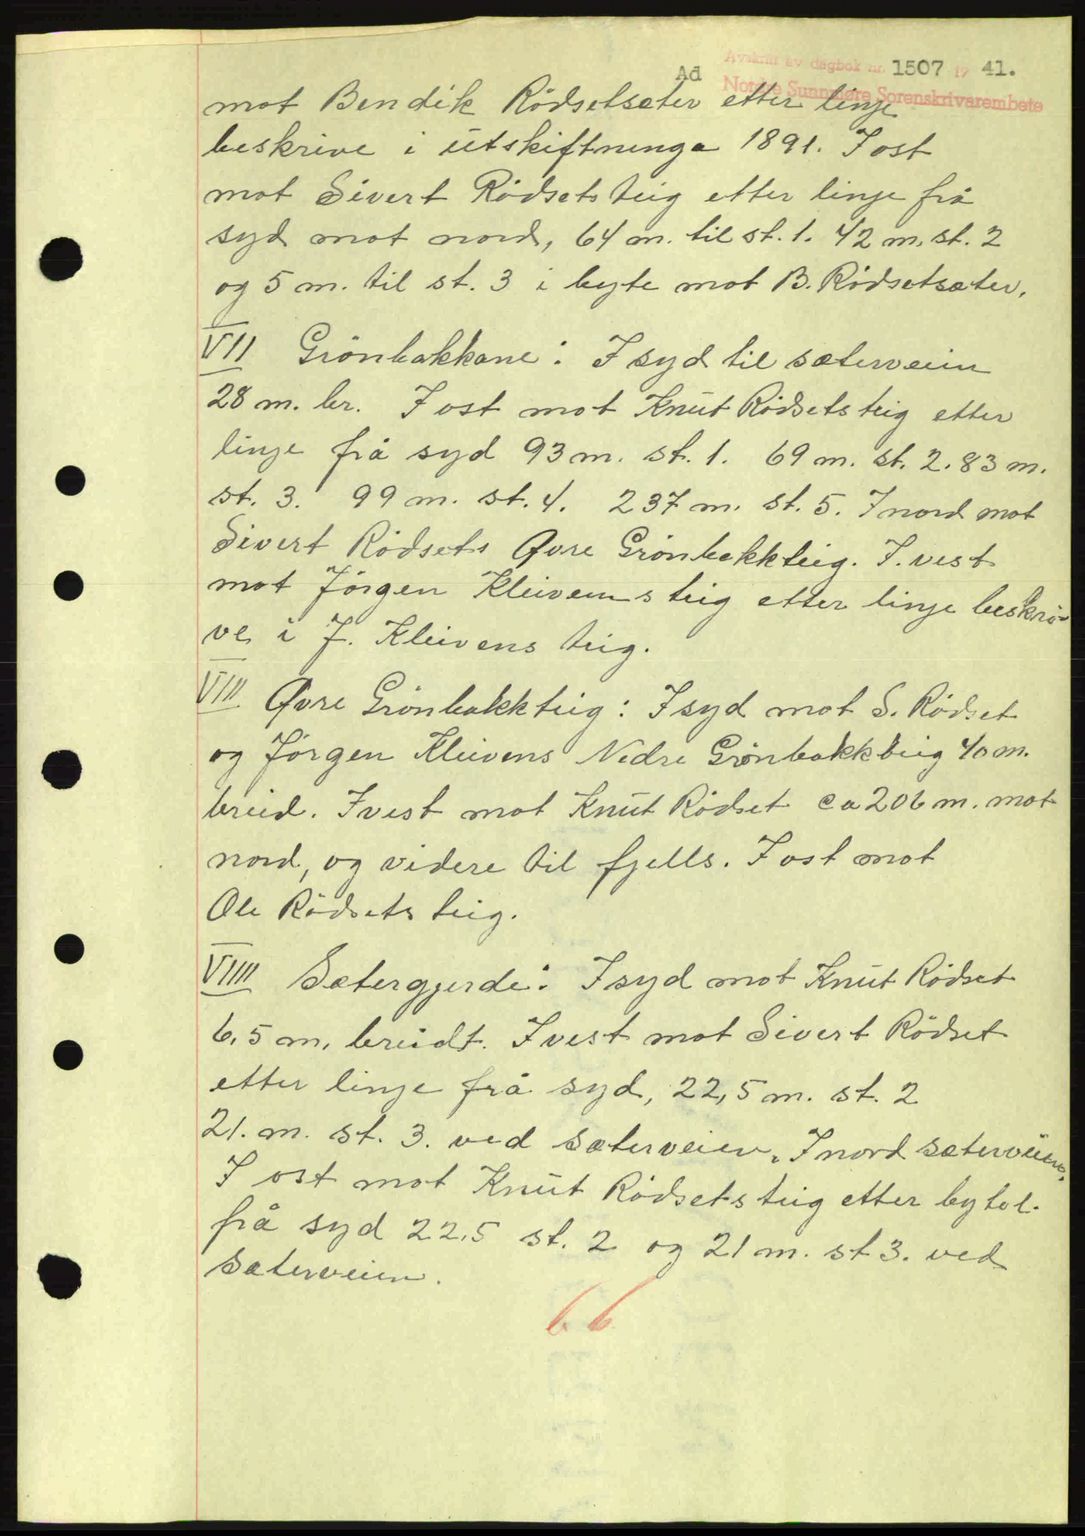 Avskrift av dagbok nr. 1507 19 41.
Ad
Nordre Sunnmøre Sorenskrivarembete
mot Bendik Rödsetsæter etter linje
beskrive i utskiftninga 1891. I ost
mot Sivert Rödsets teig etter linje frå
syd mot nord, 64 m. til st. 1. 42 m. st. 2
og 5 m. til st. 3 i byte mot B. Rödsetsæter.
VII Grönbakkane: I syd til sæterveien
28 m. br. I ost mot Knut Rödsets teig etter
linje frå syd 93 m. st. 1. 69 m. st. 2. 83 m.
st. 3. 99 m. st. 4. 237 m. st. 5. I nord mot
Sivert Rödsets Øvre Grönbakkteig. I. vest
mot Jörgen Kleivens teig etter linje beskre-
ve i J. Kleivens teig.
VIII Øvre Grönbakkteig: I syd mot S. Rödset
og Jörgen Kleivens Nedre Grönbakkteig 40 m.
breid. I vest mot Knut Rödset ca 206 m. mot
nord, og videre til fjells. I ost mot
Ole Rödsets teig.
VIIII Sætergjerde: I syd mot Knut Rödset
6,5 m. breidt. I vest mot Sivert Rödset
etter linje frå syd, 22,5 m. st. 2
21. m. st. 3. ved sæterveien. I nord sæterveien.
I ost mot Knut Rödsets teig etter bytel.
frå syd 22,5 st. 2 og 21 m. st 3. ved
Sæterveien.
66